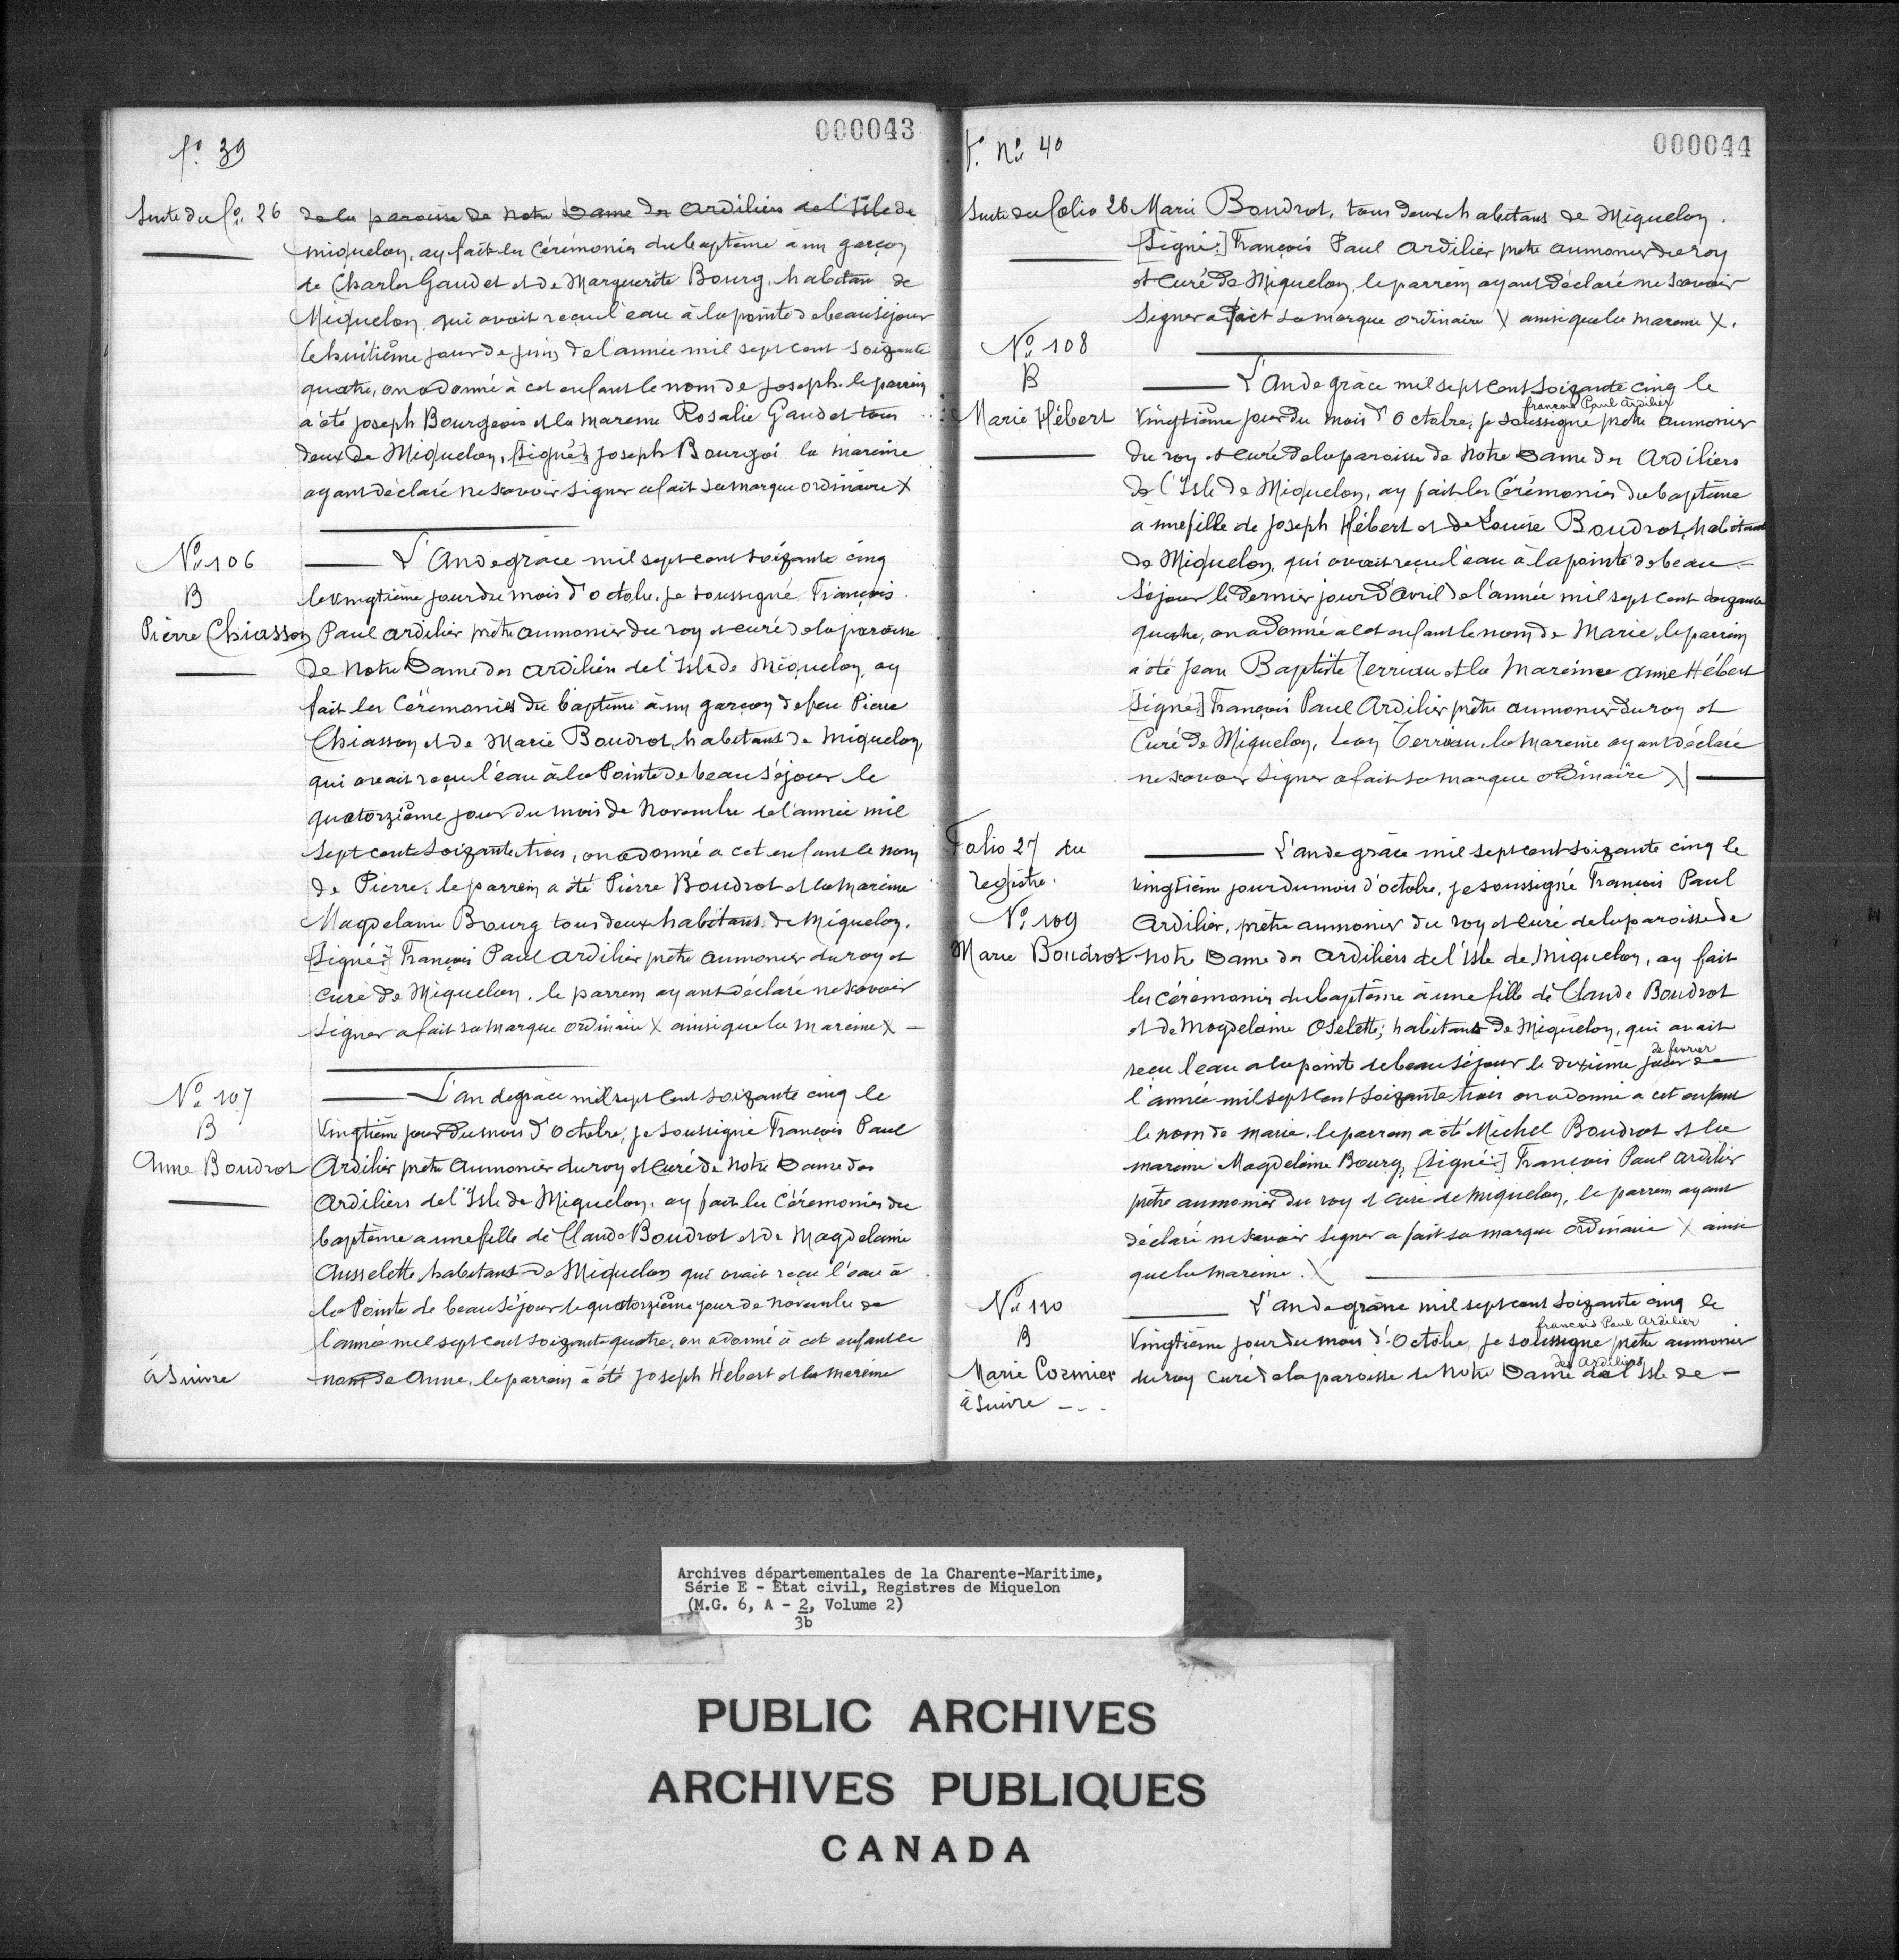 000043
fo. 39
Suite du fo. 26
de la paroisse de Notre Dame des Ardiliers de l'Isle de
miquelon, ay fait les Cérémonies du baptême à un garçon
de Charles Gaudet et de Marguerite Bourg, habitans de
Miquelon, qui avait reçu l'eau à la pointe de beauséjour
le huitième jour de juin de l'année mil sept cent soizante
quatre, on a donné à cet enfant le nom de joseph. le parrein
a été joseph Bourgeois et la mareine Rosalie Gaudet tous
deux de Miquelon, [signé:] joseph Bourgoi la mareine
ayant déclaré ne savoir signer a fait sa marque ordinaire X
No. 106
B
Pierre Chiasson
L'An de grâce mil sept cent soizante cinq
le vingtième jour du mois d'octobre, je soussigné François
Paul ardilier prêtre aumonier du roy et curé de la paroisse
de Notre Dame des ardiliers de l'Isle de Miquelon, ay
fait les Cérémonies du baptême à un garçon de feu Pierre
Chiasson et de Marie Boudrot, habitans de Miquelon,
qui avait reçu l'eau à la Pointe de beauséjour le
quatorzième jour du mois de Novembre de l'année mil
sept cent soizante trois, on a donné a cet enfant le nom
de Pierre, le parrein a été Pierre Boudrot et la mareine
Magdelaine Bourg tous deux habitans de Miquelon.
[Signé:] François Paul ardilier prêtre aumonier du roy et
curé de Miquelon. le parrein ayant déclaré ne savoir
signer a fait sa marque ordinaire X ainsi que la mareine X –
No. 107
B
Anne Boudrot
L'an de grâce mil sept cent soizante cinq le
Vingtième jour du mois d'octobre, je soussigné François Paul
Ardilier prêtre Aumonier du roy et curé de Notre Dame des
Ardiliers de l'Isle de Miquelon, ay fait les Cérémonies du
baptême a une fille de Claude Boudrot et de Magdelaine
Ausselette habitans de Miquelon qui avait reçu l'eau à
la Pointe de beauséjour le quatorzième jour de novembre de
l'année mil sept cent soizante quatre, on a donné à cet enfant le
nom de Anne, le parrein a été joseph Hebert et la mareine
à suivre
000044
f. No. 40
Suite du folio 26
Marie Boudrot, tous deux habitans de Miquelon.
[Signé:] François Paul ardilier prêtre aumonier du roy
et Curé de Miquelon, le parrein ayant déclaré ne savoir
signer a fait sa marque ordinaire X ainsi que la mareine X.
No. 108
B
Marie Hébert
L'An de grâce mil sept cent soizante cinq le
françois Paul Ardilier
Vingtième jour du mois d'Octobre, je soussigné prêtre aumonier
du roy et curé de la paroisse de Notre Dame des Ardiliers
de l'Isle de Miquelon, ay fait les Cérémonies du baptême
à une fille de joseph Hébert et de Louise Boudrot, habitans
de Miquelon, qui avait reçu l'eau à la pointe de beau-
séjour le dernier jour d'Avril de l'année mil sept cent soizante
quatre, on a donné a cet enfant le nom de Marie, le parrein
a été Jean Baptiste Terriau et la Mareinne Anne Hébert
[Signé:] François Paul Ardilier prêtre aumonier du roy et
Curé de Miquelon, Terriau, la Mareine ayant déclaré
ne savoir signer a fait sa marque ordinaire X
Folio 27 du
registre.
No. 109
Marie Boudrot
L'an de grâce mil sept cent soizante cinq le
vingtième jour du mois d'octobre, je soussigné François Paul
Ardilier, prêtre aumonier du roy et curé de la paroisse de
Notre Dame des Ardiliers de l'Isle de Miquelon, ay fait
les cérémonies du baptême à une fille de Claude Boudrot
et de Magdelaine Oselette, habitans de Miquelon, qui avait
de fevrier
reçu l'eau a la pointe de beauséjour le dixième jour de
l'année mil sept cent soizante trois on a donné a cet enfant
le nom de marie, le parrein a été Michel Boudrot et la
mareine Magdelaine Bourg, [signé:] François Paul Ardilier
prêtre aumonier du roy et curé de Miquelon, le parrein ayant
déclaré ne savoir signer a fait sa marque ordinaire X ainsi
que la mareine. X
No. 110
B
Marie Cormier
L'an de grâce mil sept cent soizante cinq le
francois Paul Ardilier
Vingtième jour du mois d'Octobre, je soussigné prêtre aumonier
des Ardiliers
du roy curé de la paroisse de Notre Dame de l'Isle de –
à suivre - - -
Archives départementales de la Charente-Maritime,
Série E - Etat civil, Registres de Miquelon
(M.G. 6, A - 2, Volume 2)
3b
PUBLIC ARCHIVES
ARCHIVES PUBLIQUES
CANADA